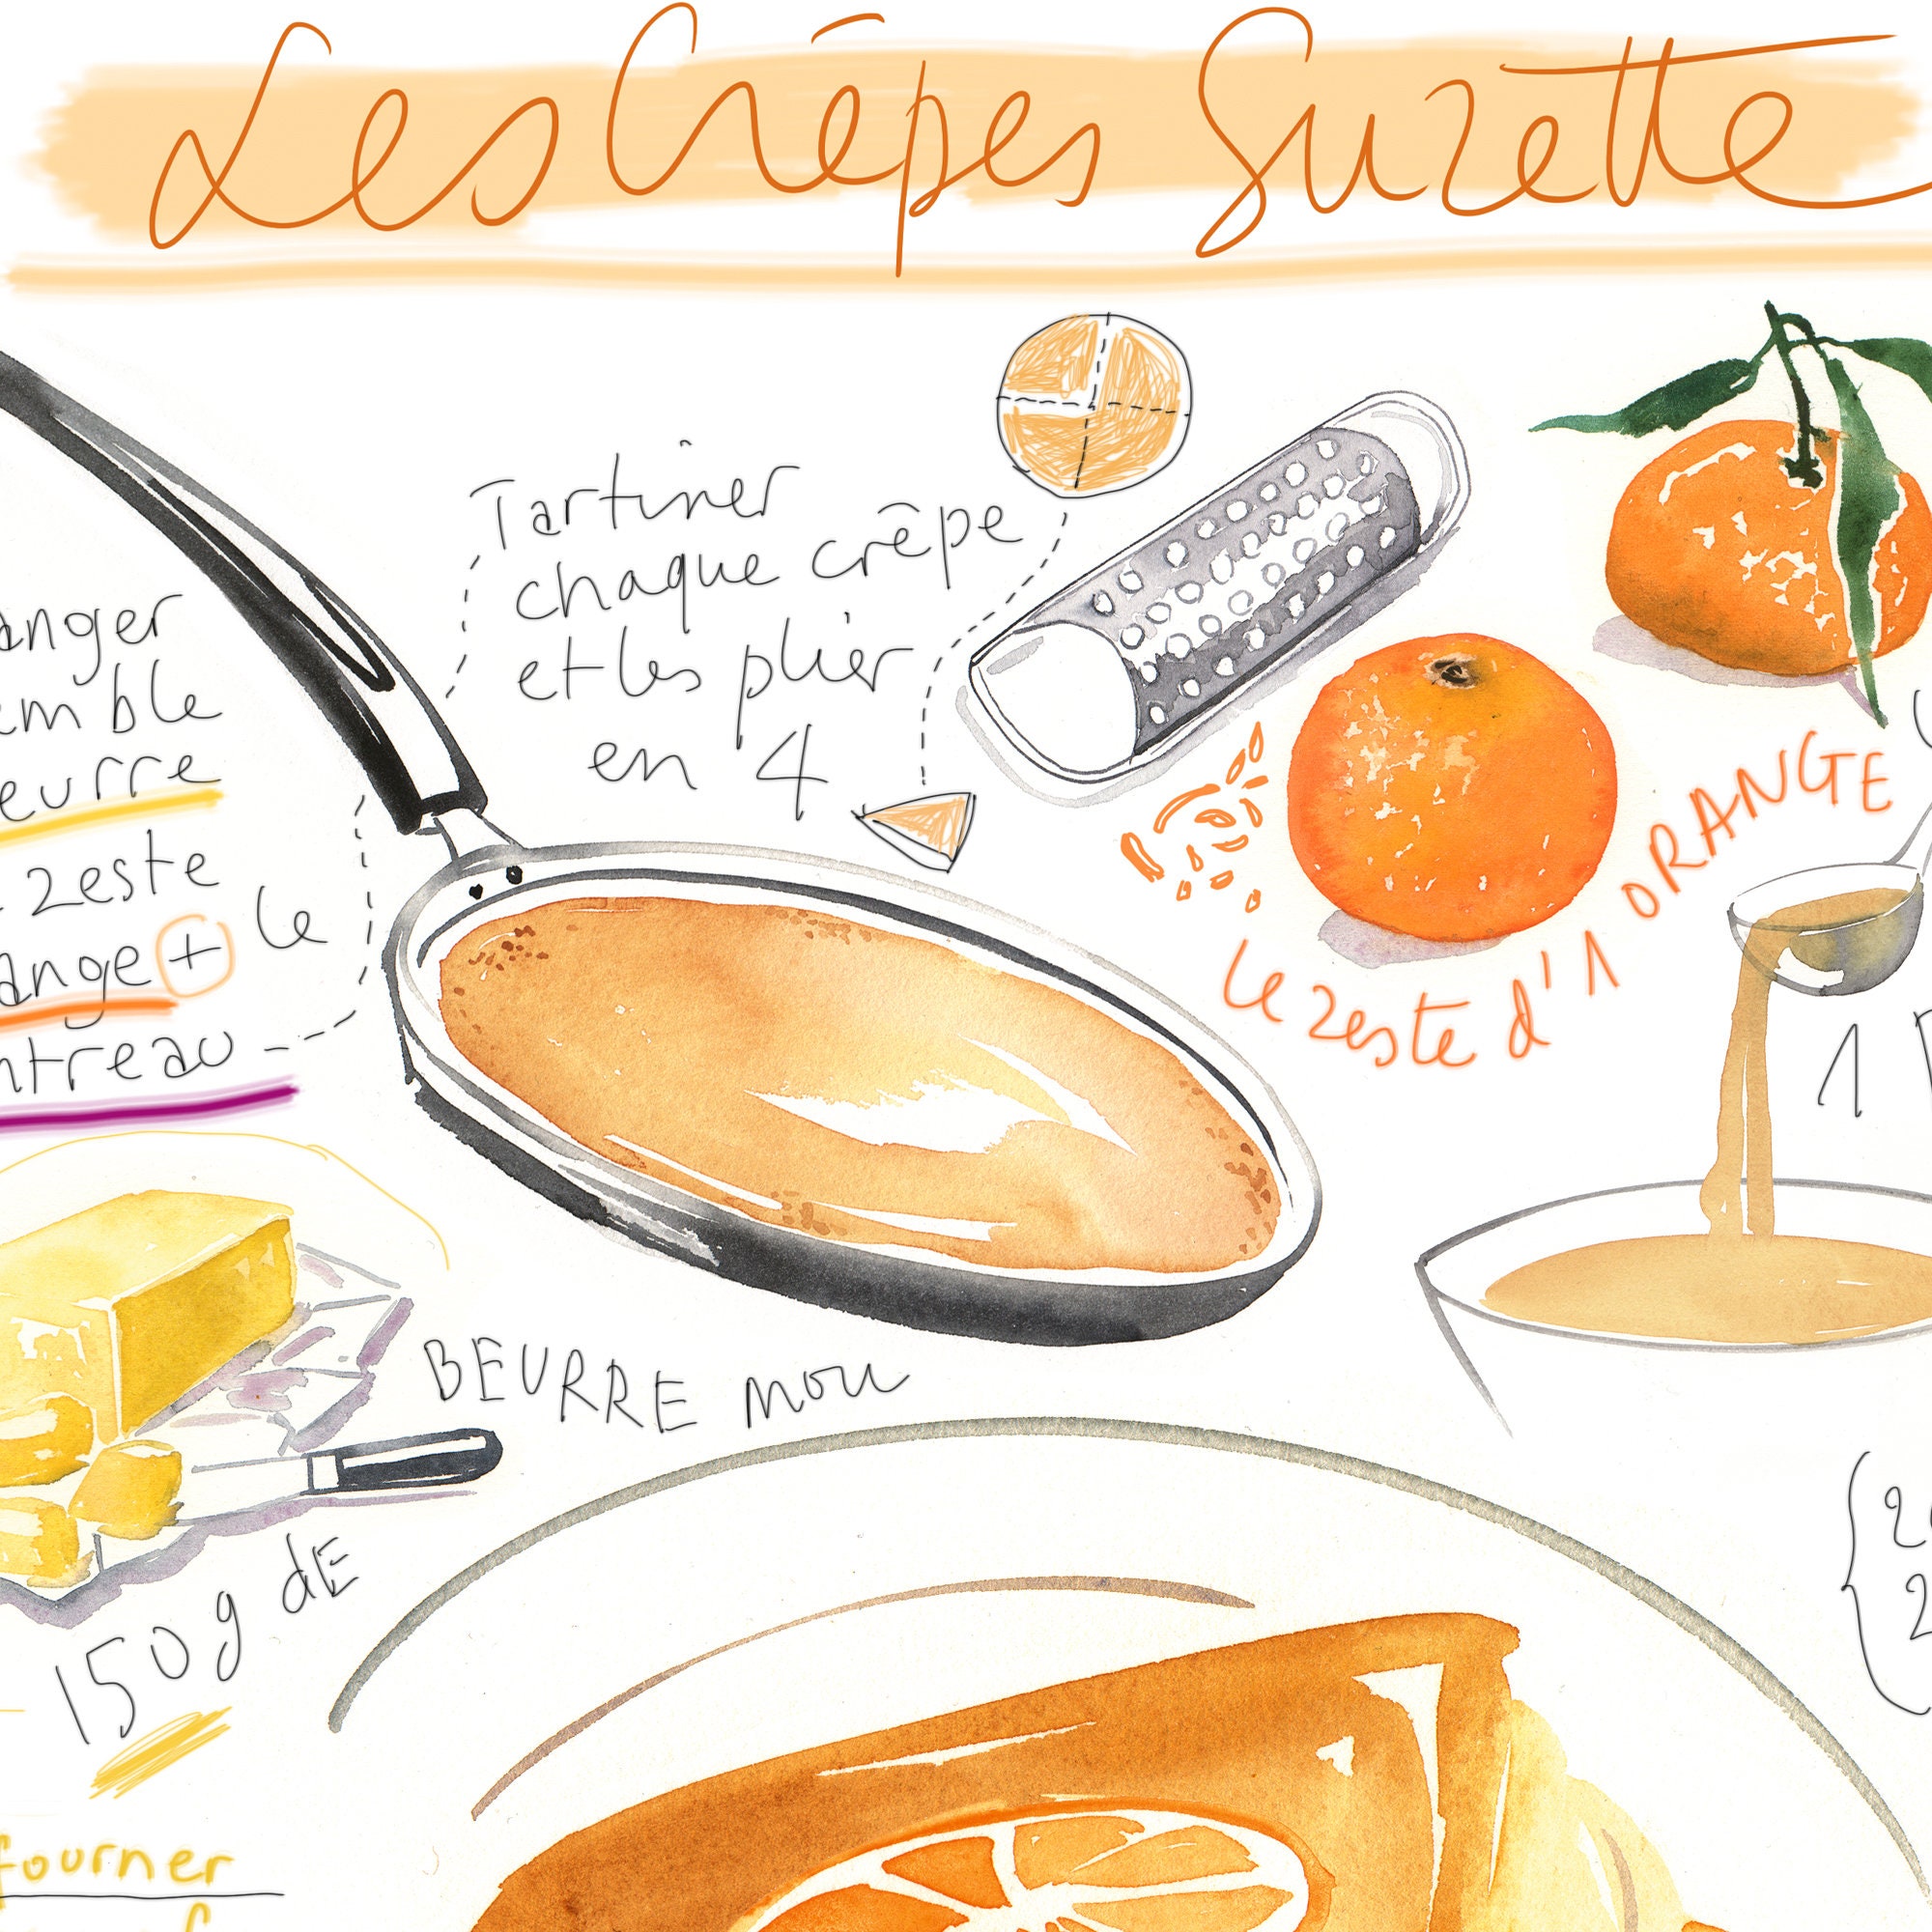 Les Crêpes Suzette
Tartiner
chaque crêpe
et les plier
en 4
anger
emble
eurre
zeste
ange + le
ntreau
le zeste d'1 ORANGE
1
BEURRE mou
150g dE
fourner